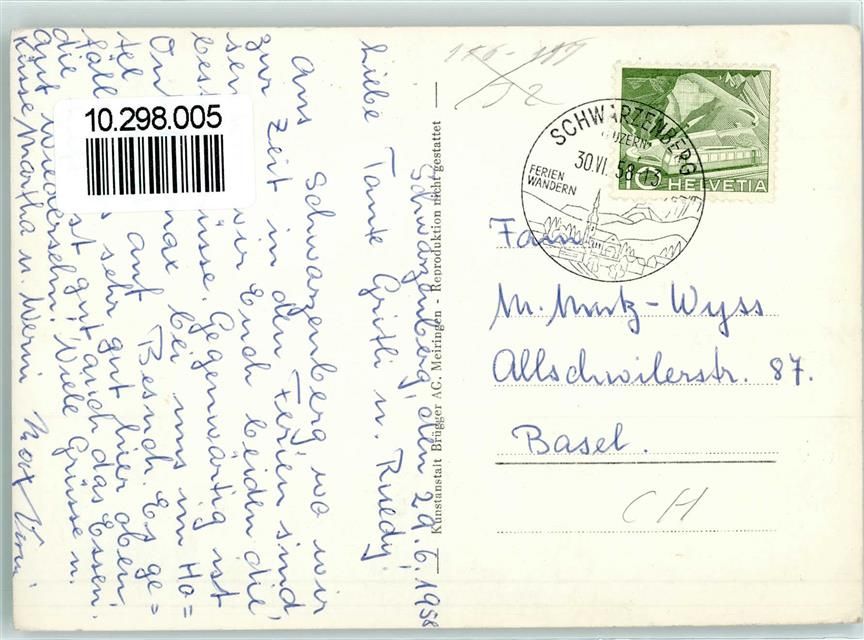 Schwarzenberg, den 29.6.1958
Liebe Tante Gritli u. Ruedy!
Aus Schwarzenberg wo wir
zur Zeit in den Ferien sind,
sen wir Euch beiden die
bes üsse. Gegenwärtig ist
On Max bei uns im Ho=
tel auf Besuch. Es ge=
fäll s sehr gut hier oben,
die st gut auch das Essen.
gut wiedersehn! Viele Grüsse u.
Küsse Martha u. Werni
10.298.005
Kunstanstalt Brügger AG. Meiringen - Reproduktion nicht gestattet
SCHWARZENBERG
(LUZERN)
30.VI.58-13
FERIEN
WANDERN
10 HELVETIA
Fam.
M. Marty-Wyss
Allschwilerstr. 87.
Basel.
CH